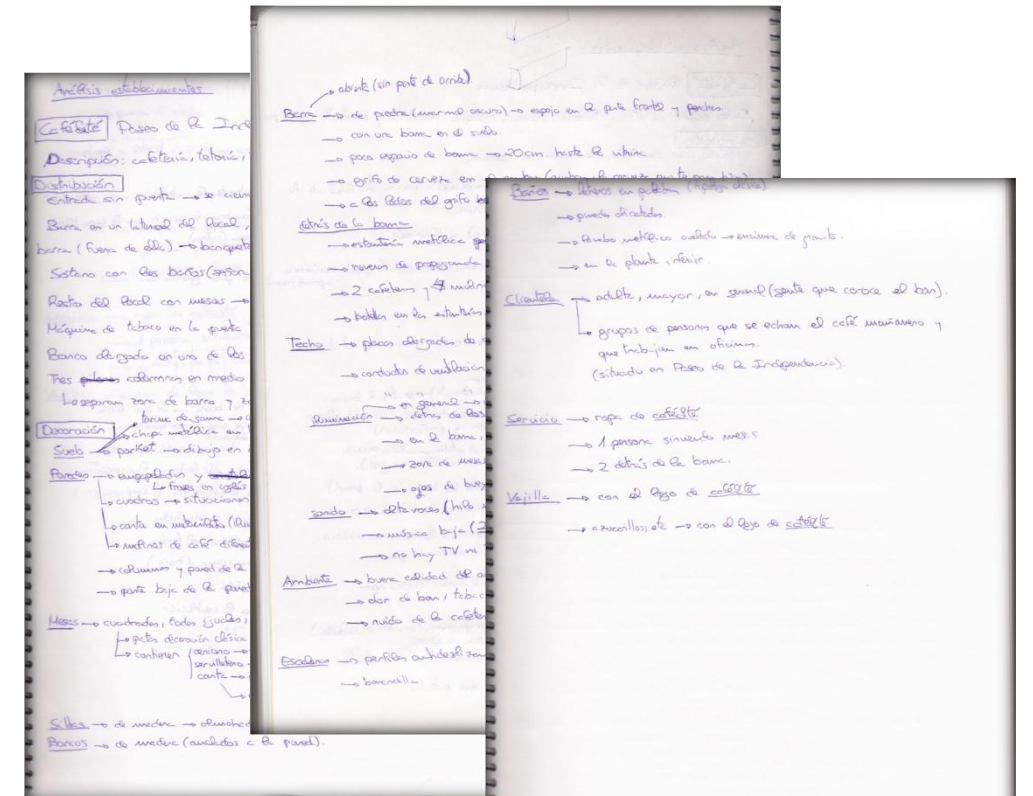 Análisis establecimientos
Cafétaté Paseo de la Ind
Descripción: cafetería, tetería,
Distribución
Entrada sin puerta →
Barra en un lateral del local,
barra (fuera de ella) → banquet
Sótano con los baños (señor
Resto del local con mesas →
Máquina de tabaco en la puerta
Banco alargado en uno de los
Tres columnas en medio
separan zona de barra y z
Decoración
→ chapa metálica en
Suelo → parket → dibujo en
Paredes → empapeladas y
↳ frases en inglés
↳ cuadros → situaciones
↳ carta en
↳ molinos de café difere
→ columnas y pared de la
→ parte baja de la pared
Mesas → cuadradas, todas iguales,
↳ patas decoración clásica
↳ contienen cenicero →
servilletero →
carta →
Sillas → de madera →
Bancos → de madera (anclados a la pared).
→ abierta (sin parte de arriba)
Barra → de piedra (marmol oscuro) → espejo en la parte frontal y perchas
→ con una barra en el suelo.
→ poco espacio de barra → 20cm. hasta la vitrina
→ grifo de cerveza en
→ a los lados del grifo
detrás de la barra
→ estantería metálica
→ neveras de propaganda
→ 2 cafeteras y molin
→ botellas en las estanterías
Techo → placas alargadas de
→ conductos de ventilación
→ en general →
Iluminación → detrás de las
→ en la barra,
→ zona de mesas
→ ojos de buey
Sonido → altavoces (hilo
→ música baja (
→ no hay TV ni
Ambiente → buena calidad del a
→ olor de bar / tabac
→ ruido de la cafeter
Escaleras → perfiles antidesliza
→ barandilla
Baños →
→ paredes alicatadas.
→ lavabo metálico ovalado → encimera de granito.
→ en la planta inferior.
Clientela → adulta, mayor, en general (gente que conoce el bar).
↳ grupos de personas que se echan el café mañanero y
que trabajan en oficinas.
(situado en Paseo de la Independencia).
Servicio → ropa de cafétaté
→ 1 persona sirviendo mesas
→ 2 detrás de la barra.
Vajilla → con el logo de cafétaté
→ azucarillos, etc → con el logo de cafétaté